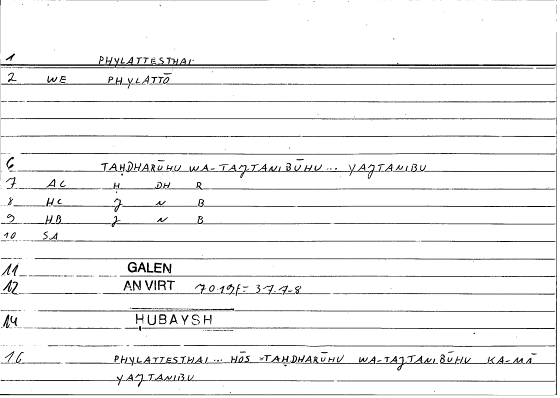 1 PHYLATTESTHAI
2 WE PHYLATTŌ
6 TAḤDHARŪHU WA-TAJTANIBŪHU ... YAJTANIBU
7 AC Ḥ DH R
8 HC J N B
9 HB J N B
10 SA
11 GALEN
12 AN VIRT 7019f= 37.7-8
14 ḤUBAYSH
16 PHYLATTESTHAI ... HŌS =TAḤDHARŪHU WA-TAJTANIBŪHU KA-MĀ
YAJTANIBU